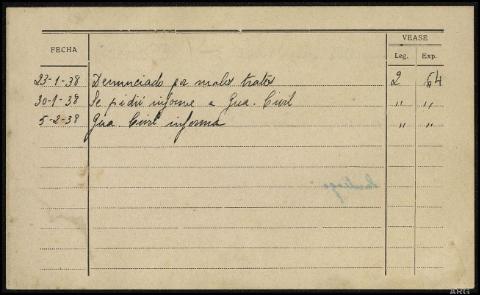 VEASE
FECHA
Leg. Exp.
23-1-38 Denunciado por malos tratos 2 64
30-1-38 Se pidió informe a Gua. Civil " "
5-2-38 Gua. Civil informa " "
ARG